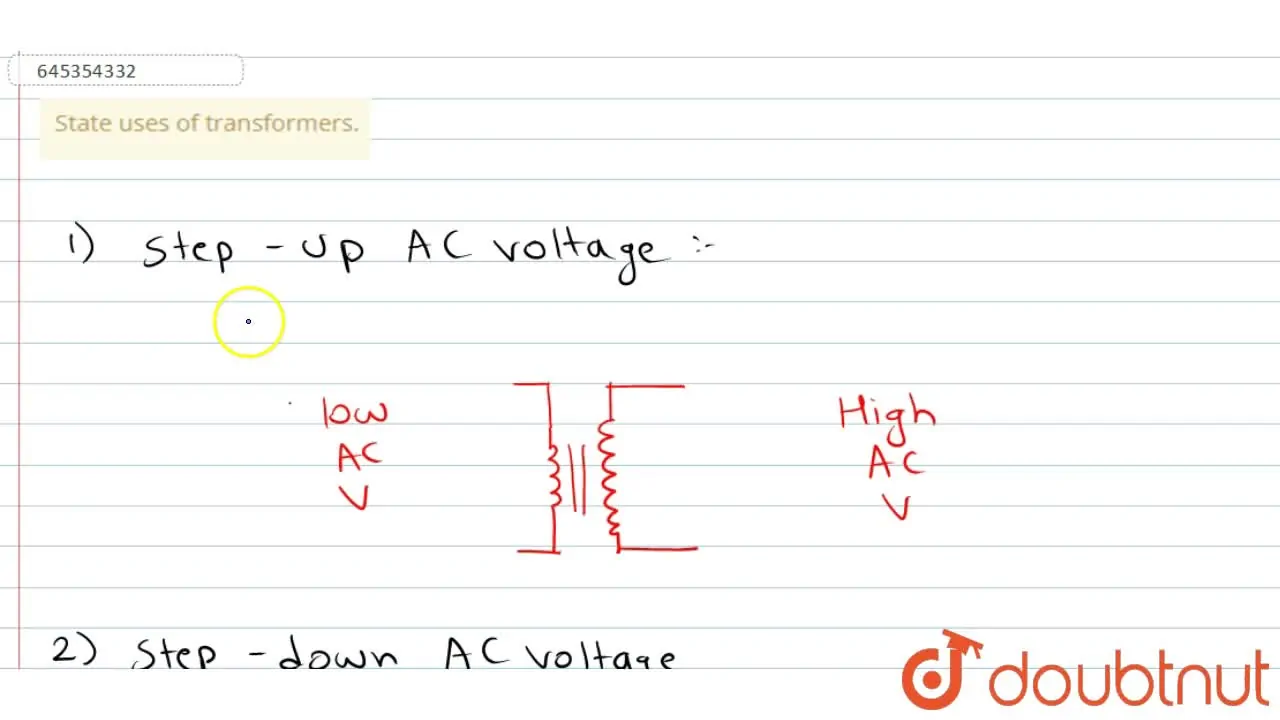 645354332
State uses of transformers.
1) Step - Up AC voltage :-
low
AC
V
High
AC
V
2) Step - down AC voltage
doubtnut